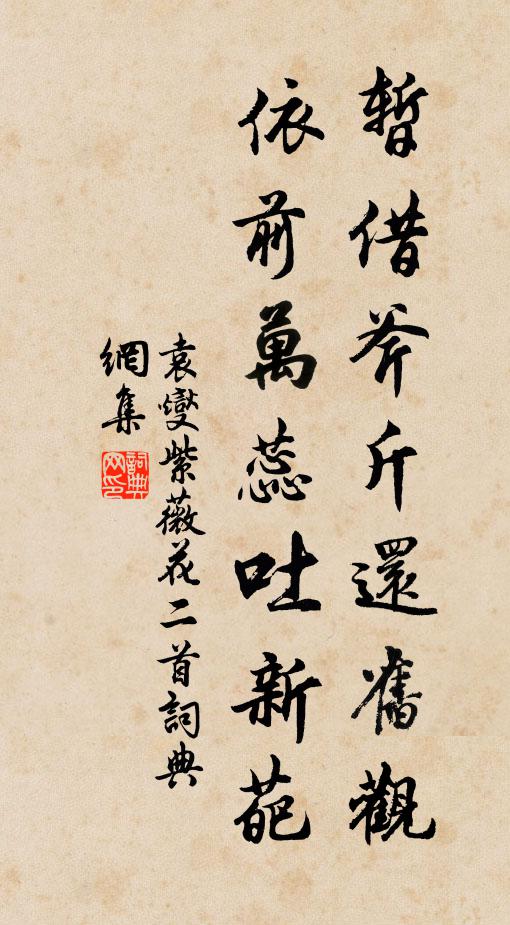 暫借斧斤還舊觀
依前萬蕊吐新葩
袁燮紫薇花二首詞典
網集
詞典
网印